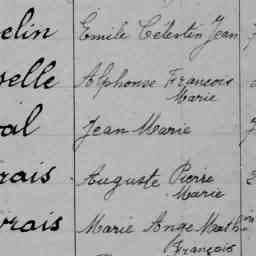 elin Emile Célestin Jean
selle Alphonse François
Marie
al Jean Marie
rais Auguste Pierre
Marie
vrais Marie Ange Math
François